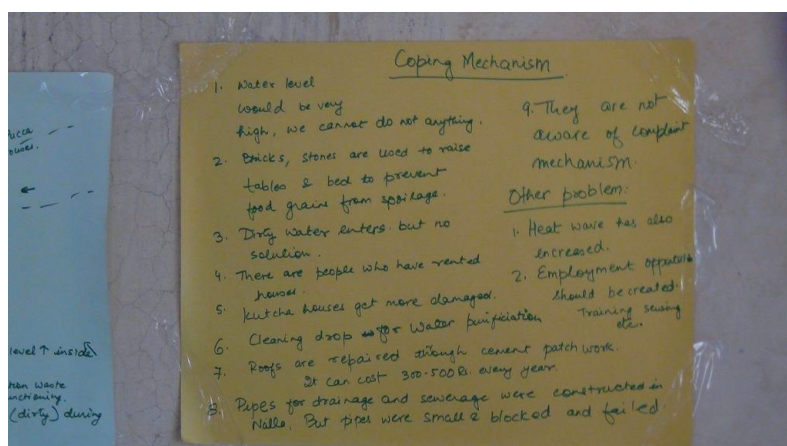 Coping Mechanism
1. Water level
would be very
high, we cannot do not anything.
2. Bricks, stones are used to raise
tables & bed to prevent
food grains from spoilage.
3. Dirty water enters. but no
solution.
4. There are people who have rented
houses.
5. Kutcha houses get more damaged.
6. Cleaning drop for water purificiation
7. Roofs are repaired through cement patch work.
It can cost 300-500Rs. every year.
8. Pipes for drainage and sewerage were constructed in
Nalla. But pipes were small & blocked and failed.
9. They are not
aware of complaint
mechanism.
Other problem:
1. Heat wave has also
increased.
2. Employment
should be created.
Training sewing
etc.
Pucca
houses.
←
level ↑ inside
waste
(dirty) during